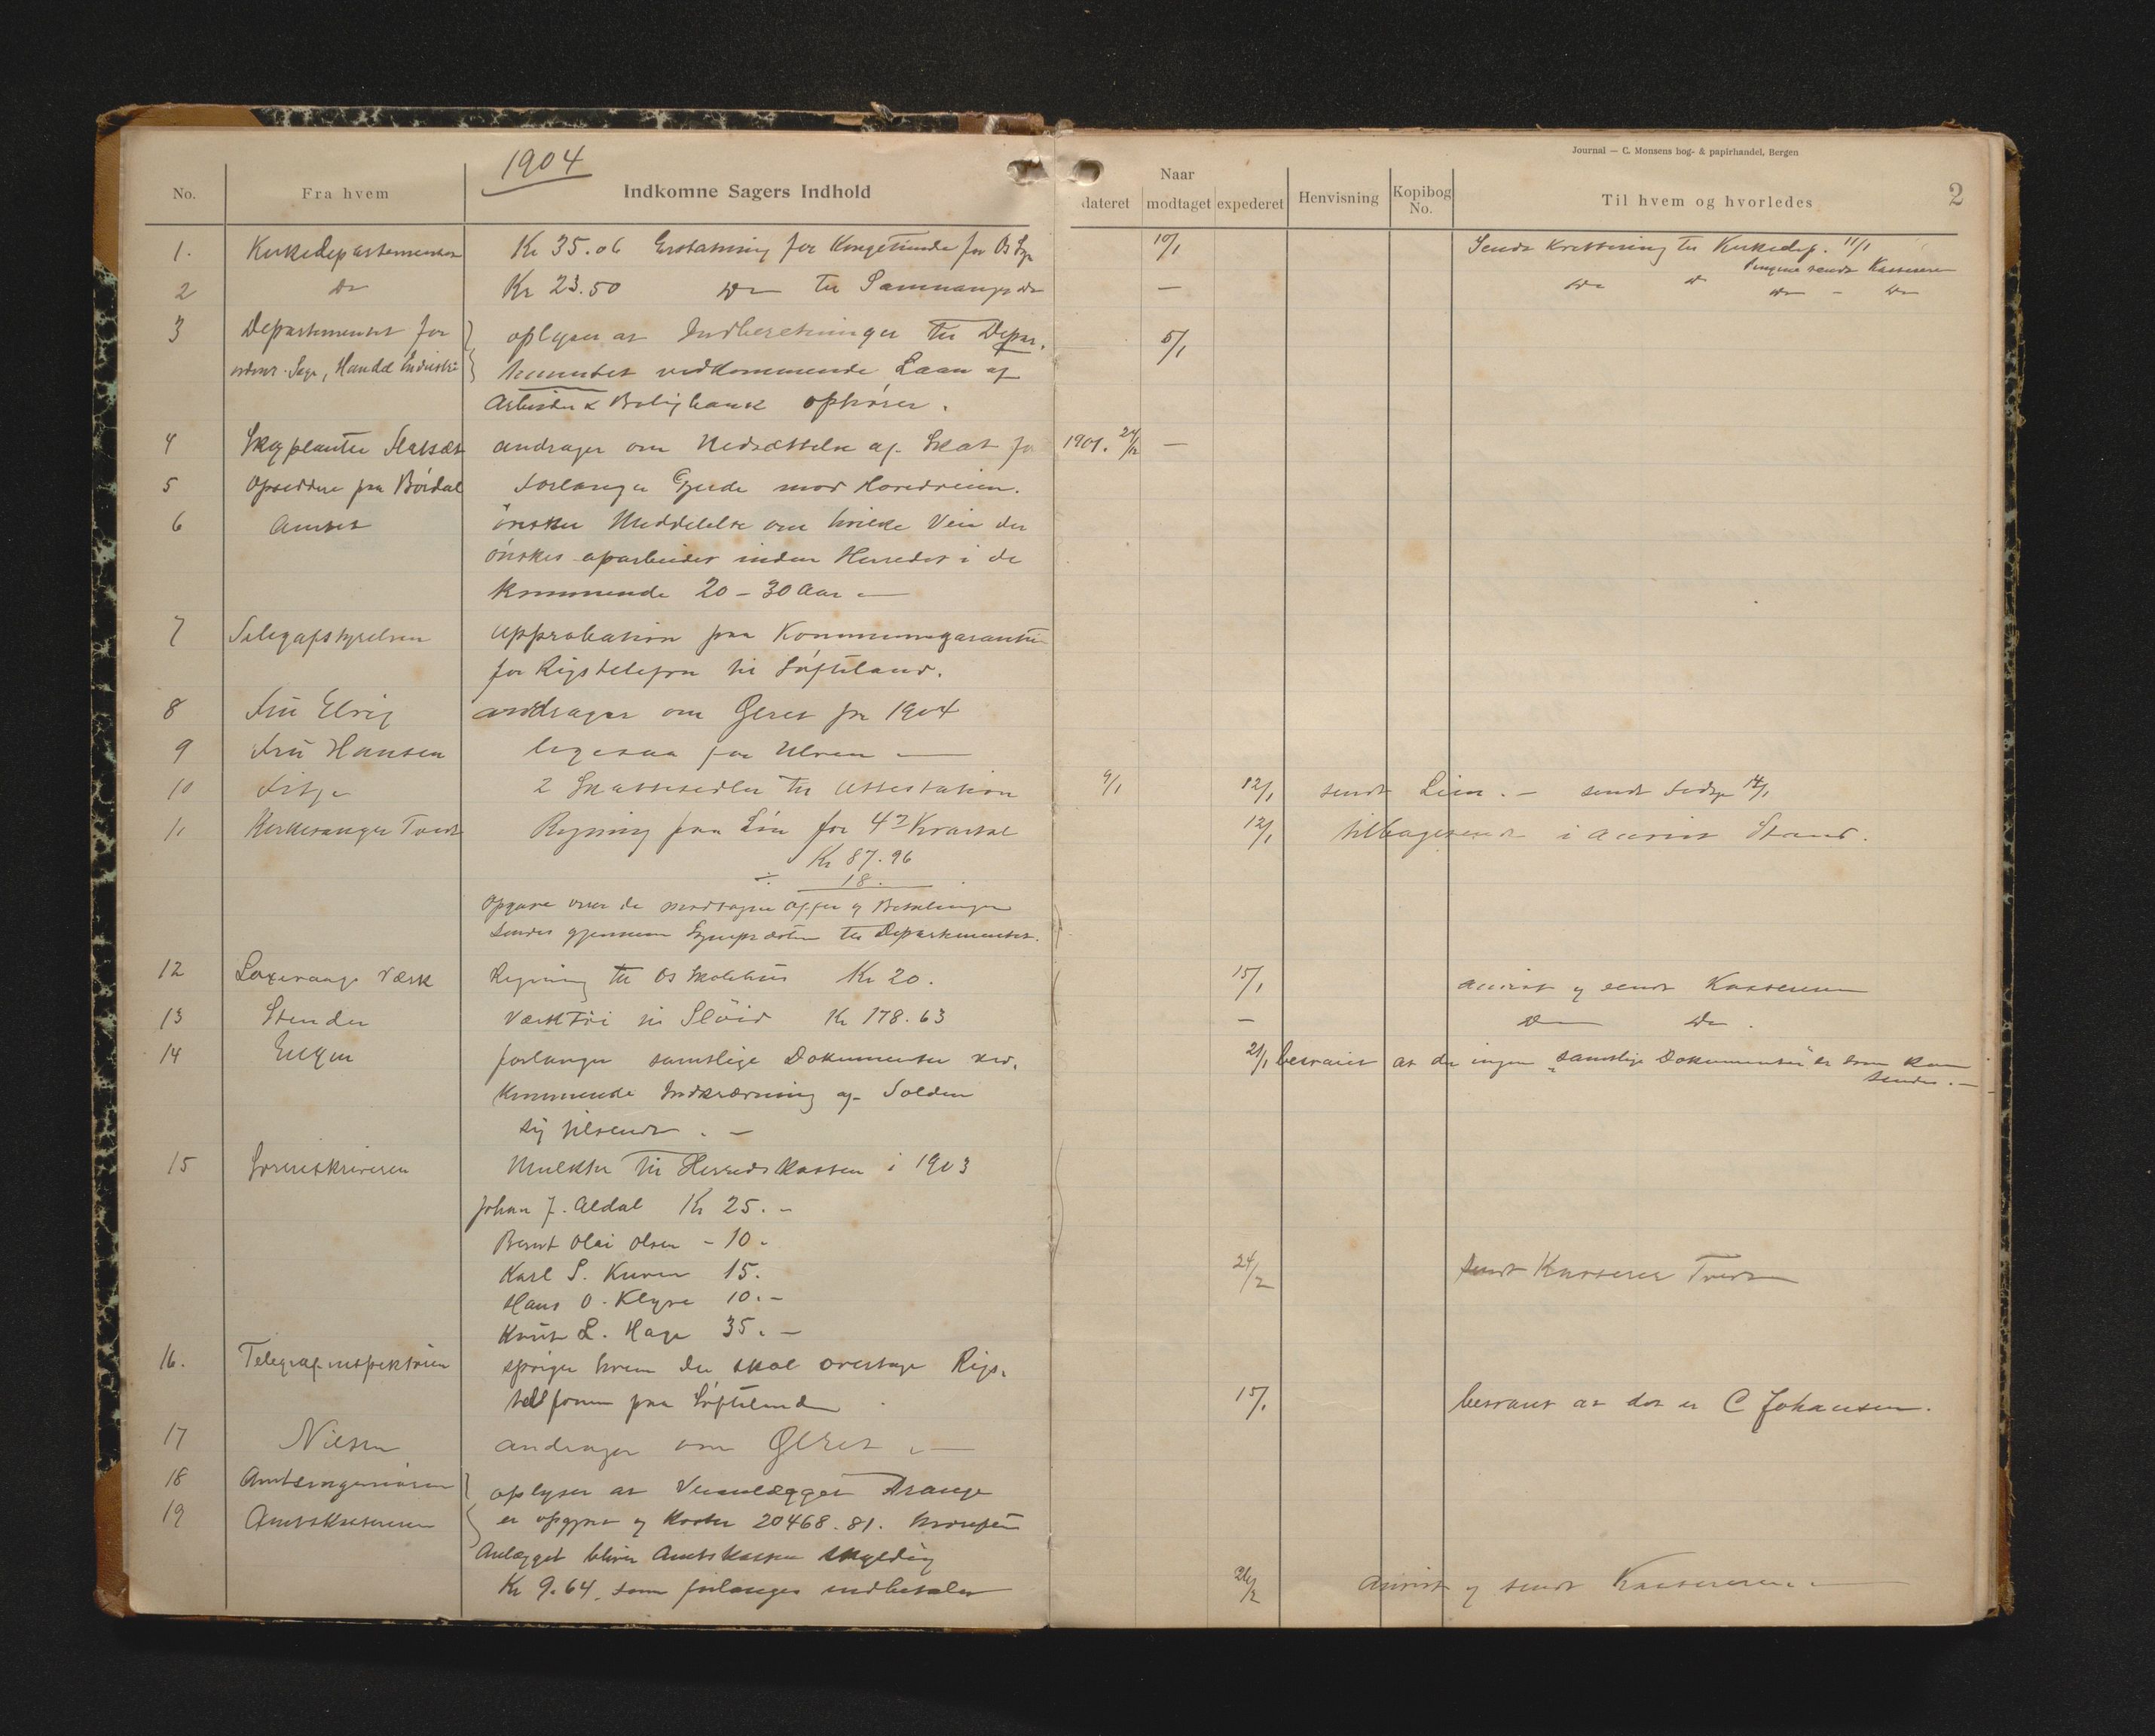 1904
Journal — C. Monsens bog- & papirhandel, Bergen
2
No. Fra hvem Indkomne Sagers Indhold
Naar
dateret modtaget expederet Henvisning Kopibog No. Til hvem og hvorledes
1. Kirkedepartementet Kr 35.06 Erstatning for Kongetiende for Os 10/1 Sendt Kvittering til Kirkedep. 11/1
Pengene sendt Kassereren
2 Do Kr 23.50 Do til Samnanger Do — Do Do Do - Do
3 Departementet for oplyser at Indberetninger til Depar- 5/1
Sage, Handel Industri tementet vedkommende Laan af
Arbeider & Boligbank ophører.
4 Skogplanter andrager om Nedsættelse af Skat 1901. 24/12 —
5 Opsiddere paa Bördal forlanger Gjerde mod Hovedveien.
6 Amtet önsker Meddelelse om hvilke Veie der
önskes oparbeidet inden Herredet i de
kommende 20-30 Aar —
7 Telegrafstyrelsen Approbation paa Kommunegaranti
for Rigstelefon til Söfteland.
8 Fru Elvig andrager om Ølret for 1904
9 Fru Hansen ligesaa for Ulven —
10 2 Skattesedler til Attestation 9/1 12/1 sendt Lien. — sendt 14/1
11 Kirkesanger Tveit Regning fra Lien for 4de Kvartal 12/1 tilbagesendt i anvist Stand.
Kr 87.96
÷ 18.—
Opgave over de modtagne Offer og Betalinger
sendes gjennem Sogneprästen til Departementet.
12 Laxevaags Værk Regning til Os Skolehus Kr 20. 15/1 anvist og sendt Kassereren
13 Stender Værktöi til Slöid Kr 178.63 — Do Do.
14 forlanger samtlige Dokumenter ved- 21/1 besvaret at der ingen "samtlige Dokumenter" er som kan
sendes. —
kommende Inddrivning af
sig tilsendt. —
15 Sorenskriveren Mulkter til Herredskassen i 1903
Johan J. Aldal Kr 25. -
Bernt Olai Olsen - 10 -
Karl S. Kuven 15. 24/2 sendt Kasserer Tveit
Hans O. Klyve 10. -
Knut L. Hage 35. -
16. Telegrafinspektören spörger hvem der skal overtage Rigs-
telefonen paa Söfteland 15/1 besvaret at det er C Johansen.
17 Nielsen andrager om Ølret. —
18 Amtsingeniören oplyser at Veianlægget Drange
19 Amtskassereren er opgjort og koster 20468.81.
Anlægget bliver Amtskassen skyldig
Kr 9.64, som forlanges indbetalt 26/2 anvist og sendt Kassereren. —